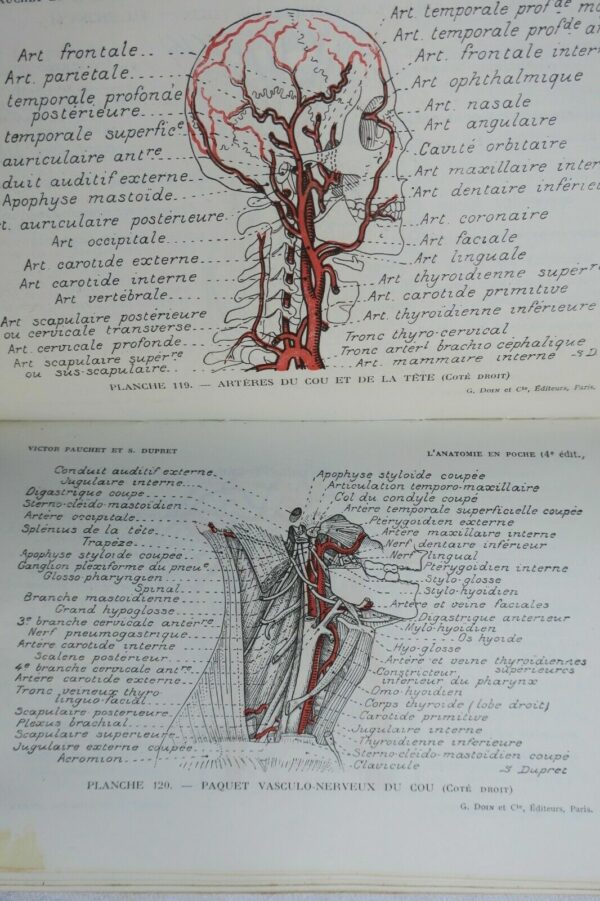 Art. temporale prof.de
Art. temporale prof.de
Art. frontale inter
Art ophthalmique
Art. nasale
Art angulaire
Cavité orbitaire
Art. maxillaire inter
Art dentaire inférieu
Art. coronaire
Art faciale
Art. linguale
Art thyroidienne supérre
Art. carotide primitive
Art. thyroïdienne inférieure
Tronc thyro-cervical
Tronc artérl brachio céphalique
Art. mammaire interne -S D
Art frontale
Art. pariétale
temporale profonde
postérieure
temporale superficᵉ
auriculaire antre
duit auditif externe
Apophyse mastoïde
t. auriculaire postérieure
Art occipitale
Art carotide externe
Art carotide interne
Art vertébrale
Art scapulaire postérieure
ou cervicale transverse
Art. cervicale profonde
Art scapulaire supérre
ou sus-scapulaire
PLANCHE 119. — ARTÈRES DU COU ET DE LA TÊTE (COTÉ DROIT)
G. DOIN et Cie, Éditeurs, Paris.
VICTOR PAUCHET ET S. DUPRET
L'ANATOMIE EN POCHE (4e édit.,
Conduit auditif externe
Jugulaire interne
Digastrique coupé
Sterno-cléido-mastoïdien
Artère occipitale
Splénius de la tête
Trapèze
Apophyse styloïde coupée
Ganglion plexiforme du pneue
Glosso pharyngien
Spinal
Branche mastoïdienne
Grand hypoglosse
3e branche cervicale antérre
Nerf pneumogastrique
Artère carotide interne
Scalène postérieur
4e branche cervicale antre
Artère carotide externe
Tronc veineux thyro
linguo-facial
Scapulaire postérieure
Plexus brachial
Scapulaire supérieure
Jugulaire externe coupée
Acromion
Apophyse styloïde coupée
Articulation temporo-maxillaire
Col du condyle coupé
Artère temporale superficielle coupée
Ptérygoïdien externe
Artère maxillaire interne
Nerf dentaire inférieur
Nerf lingual
Ptérygoïdien interne
Stylo-glosse
Stylo-hyoïdien
Artère et veine faciales
Digastrique antérieur
Mylo-hyoïdien
Os hyoïde
Hyo-glosse
Artère et veine thyroïdiennes
supérieures
Constricteur
inférieur du pharynx
Omo-hyoïdien
Corps thyroïde (lobe droit)
Carotide primitive
Jugulaire interne
Thyroïdienne inférieure
Sterno-cléido-mastoïdien coupé
Clavicule
S Dupret
PLANCHE 120. — PAQUET VASCULO-NERVEUX DU COU (COTÉ DROIT)
G. DOIN et Cie, Éditeurs, Paris.